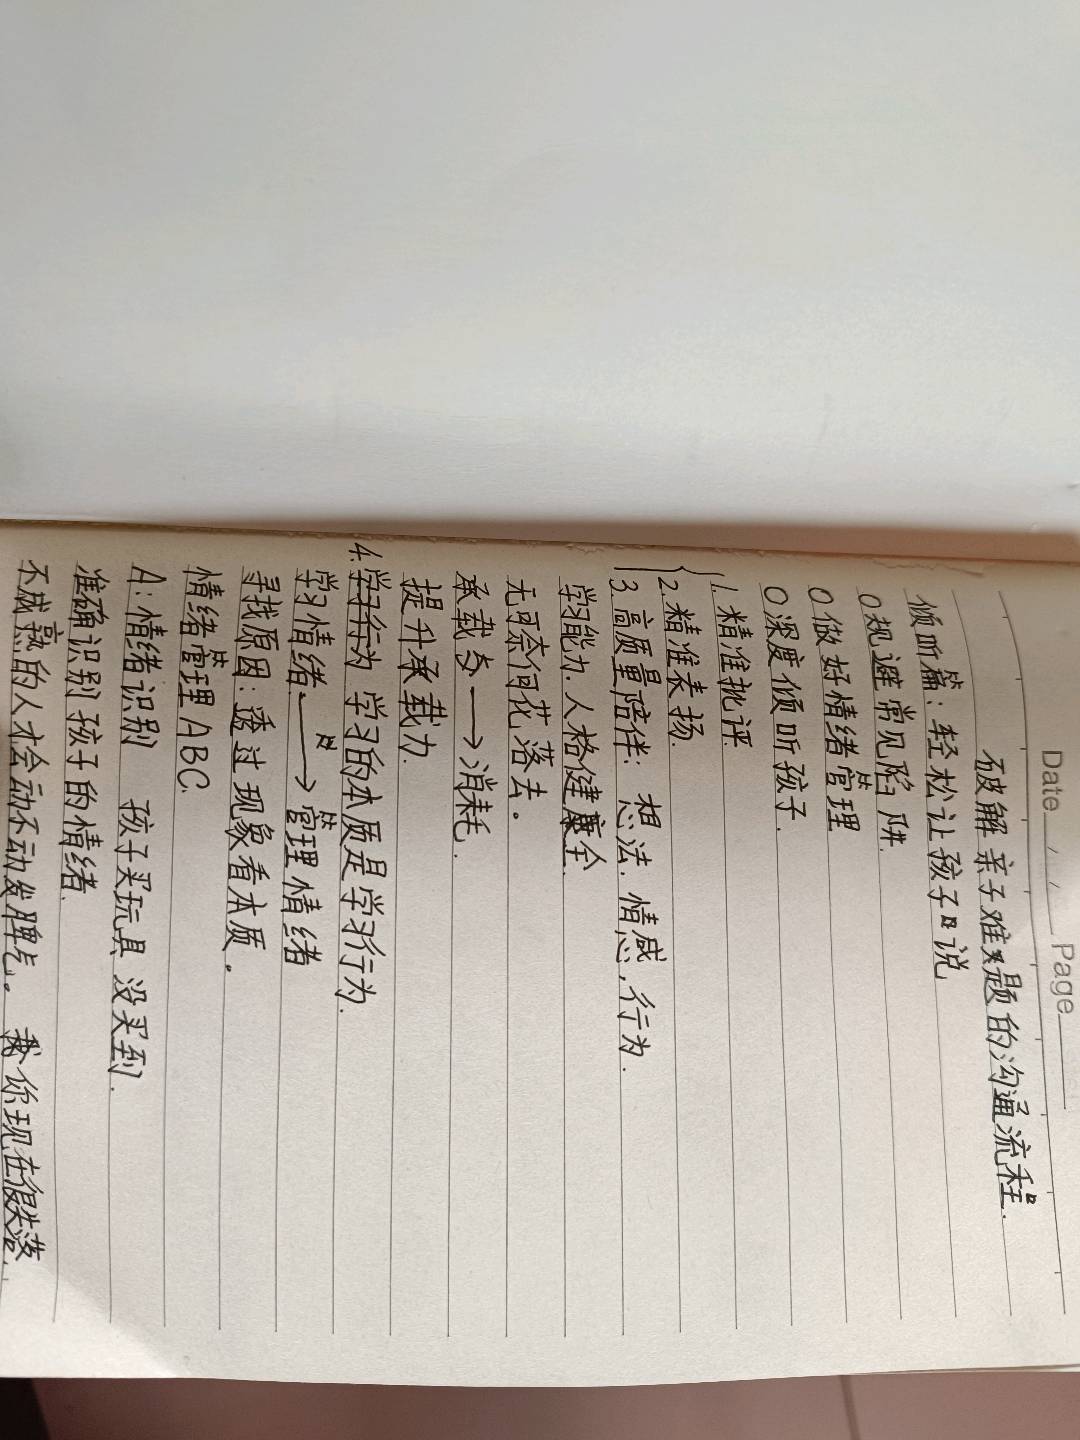 Date / / Page
破解亲子难题的沟通流程.
倾听篇:轻松让孩子口说
O规避常见陷阱.
O做好情绪管理
O深度倾听孩子.
1.精准批评
2.精准表扬.
3.高质量陪伴:想法.情感,行为.
学习能力.人格健康全.
无可奈何花落去。
承载与→消耗.
提升承载力.
4.学习行为 学习的本质是学习行为.
学习情绪.→管理情绪
寻找原因:透过现象看本质。
情绪管理ABC.
A:情绪识别 孩子买玩具 没买到.
准确识别孩子的情绪.
不成熟的人才会动不动发脾气。我你现在很失落.